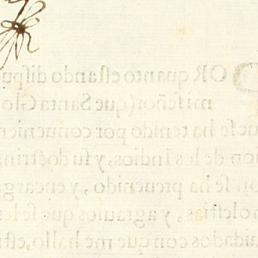 POR quanto estando dispu
mi señor (que Santa Glo
que se ha tenido por conuenien
ion de los Indios, y su doctrina
se ha preuenido, y encarg
molestias, y agrauios que se les
cuidados con que me hallo, est